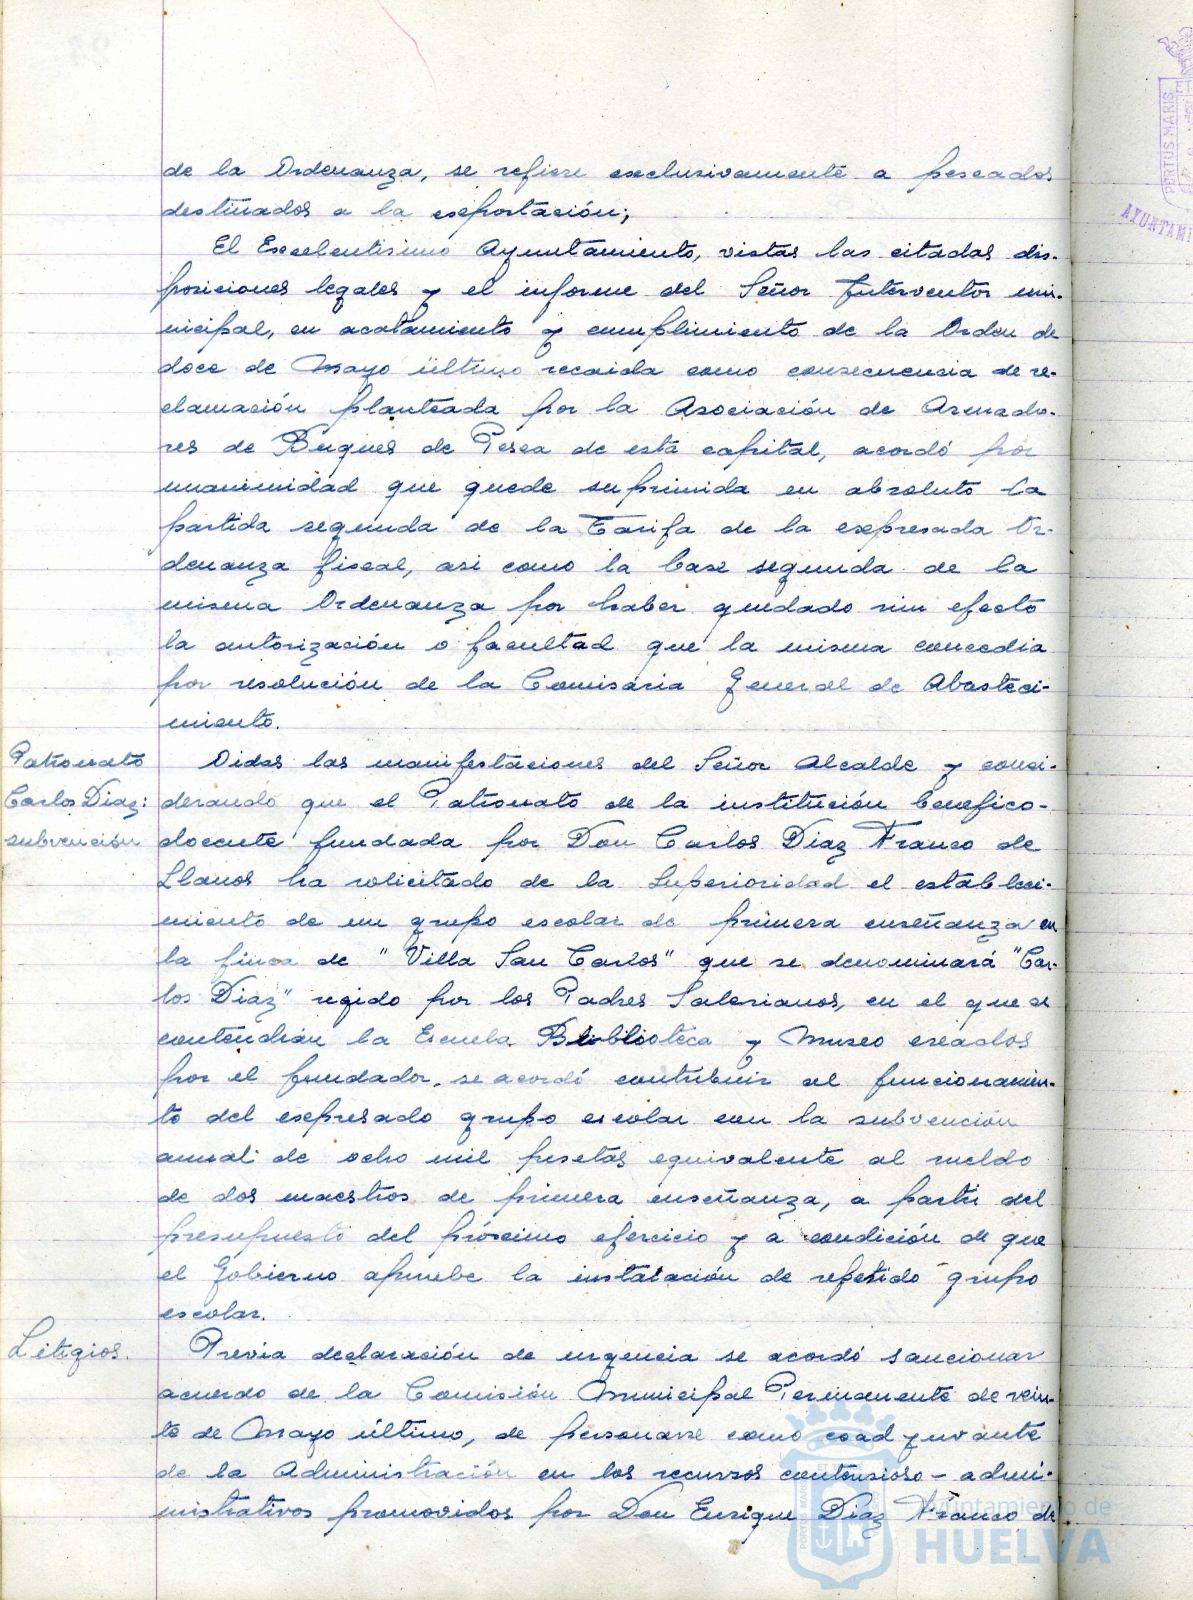 de la Ordenanza, se refiere exclusivamente a pescados
destinados a la exportación;
El Excelentísimo Ayuntamiento, vistas las citadas dis-
posiciones legales y el informe del Señor Interventor mu-
nicipal, en acatamiento y cumplimiento de la Orden de
doce de Mayo último recaida como consecuencia de re-
clamación planteada por la Asociación de Armado-
res de Buques de Pesca de esta capital, acordó por
unanimidad que quede suprimida en absoluto la
partida segunda de la Tarifa de la expresada Or-
denanza fiscal, asi como la base segunda de la
misma Ordenanza por haber quedado sin efecto
la autorización o facultad que la misma concedia
por resolución de la Comisaria General de Abasteci-
miento.
Patronato
Carlos Diaz:
subvención
Oidas las manifestaciones del Señor Alcalde y consi-
derando que el Patronato de la institución benefico-
docente fundada por Don Carlos Diaz Franco de
Llanos ha solicitado de la Superioridad el estableci-
miento de un grupo escolar de primera enseñanza en
la finca de "Villa San Carlos" que se denominará "Car-
los Diaz" regido por los Padres Salesianos, en el que se
contendrán la Escuela Biblioteca y Museo creados
por el fundador, se acordó contribuir al funcionamien-
to del expresado grupo escolar con la subvención
anual de ocho mil pesetas equivalente al sueldo
de dos maestros de primera enseñanza, a partir del
presupuesto del próximo ejercicio y a condición de que
el Gobierno apruebe la instalación de repetido grupo
escolar.
Litigios.
Previa declaración de urgencia se acordó sancionar
acuerdo de la Comisión Municipal Permanente de vein-
te de Mayo último, de personarse como coadyuvante
de la Administración en los recursos contensioso-admi-
nistrativos promovidos por Don Enrique Diaz Franco de
PORTUS MARIS
AYUNTAMI
Ayuntamiento de
HUELVA